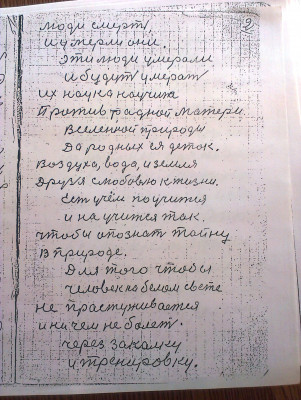 2
люди смерт
и умерли они.
эти люди умерали
и будут умерат
их наука научила
Против радной матери
Вселенной природы
Да родных ея деток.
воздуха, вода, и земля
друзя с любовью к жизни.
Сет учём поучится
и научится так.
чтобы опознат тайну
в природе.
Для того чтобы
человек на белом свете
не прастуживается
и ничем не болет.
через закалку
и тренировку.